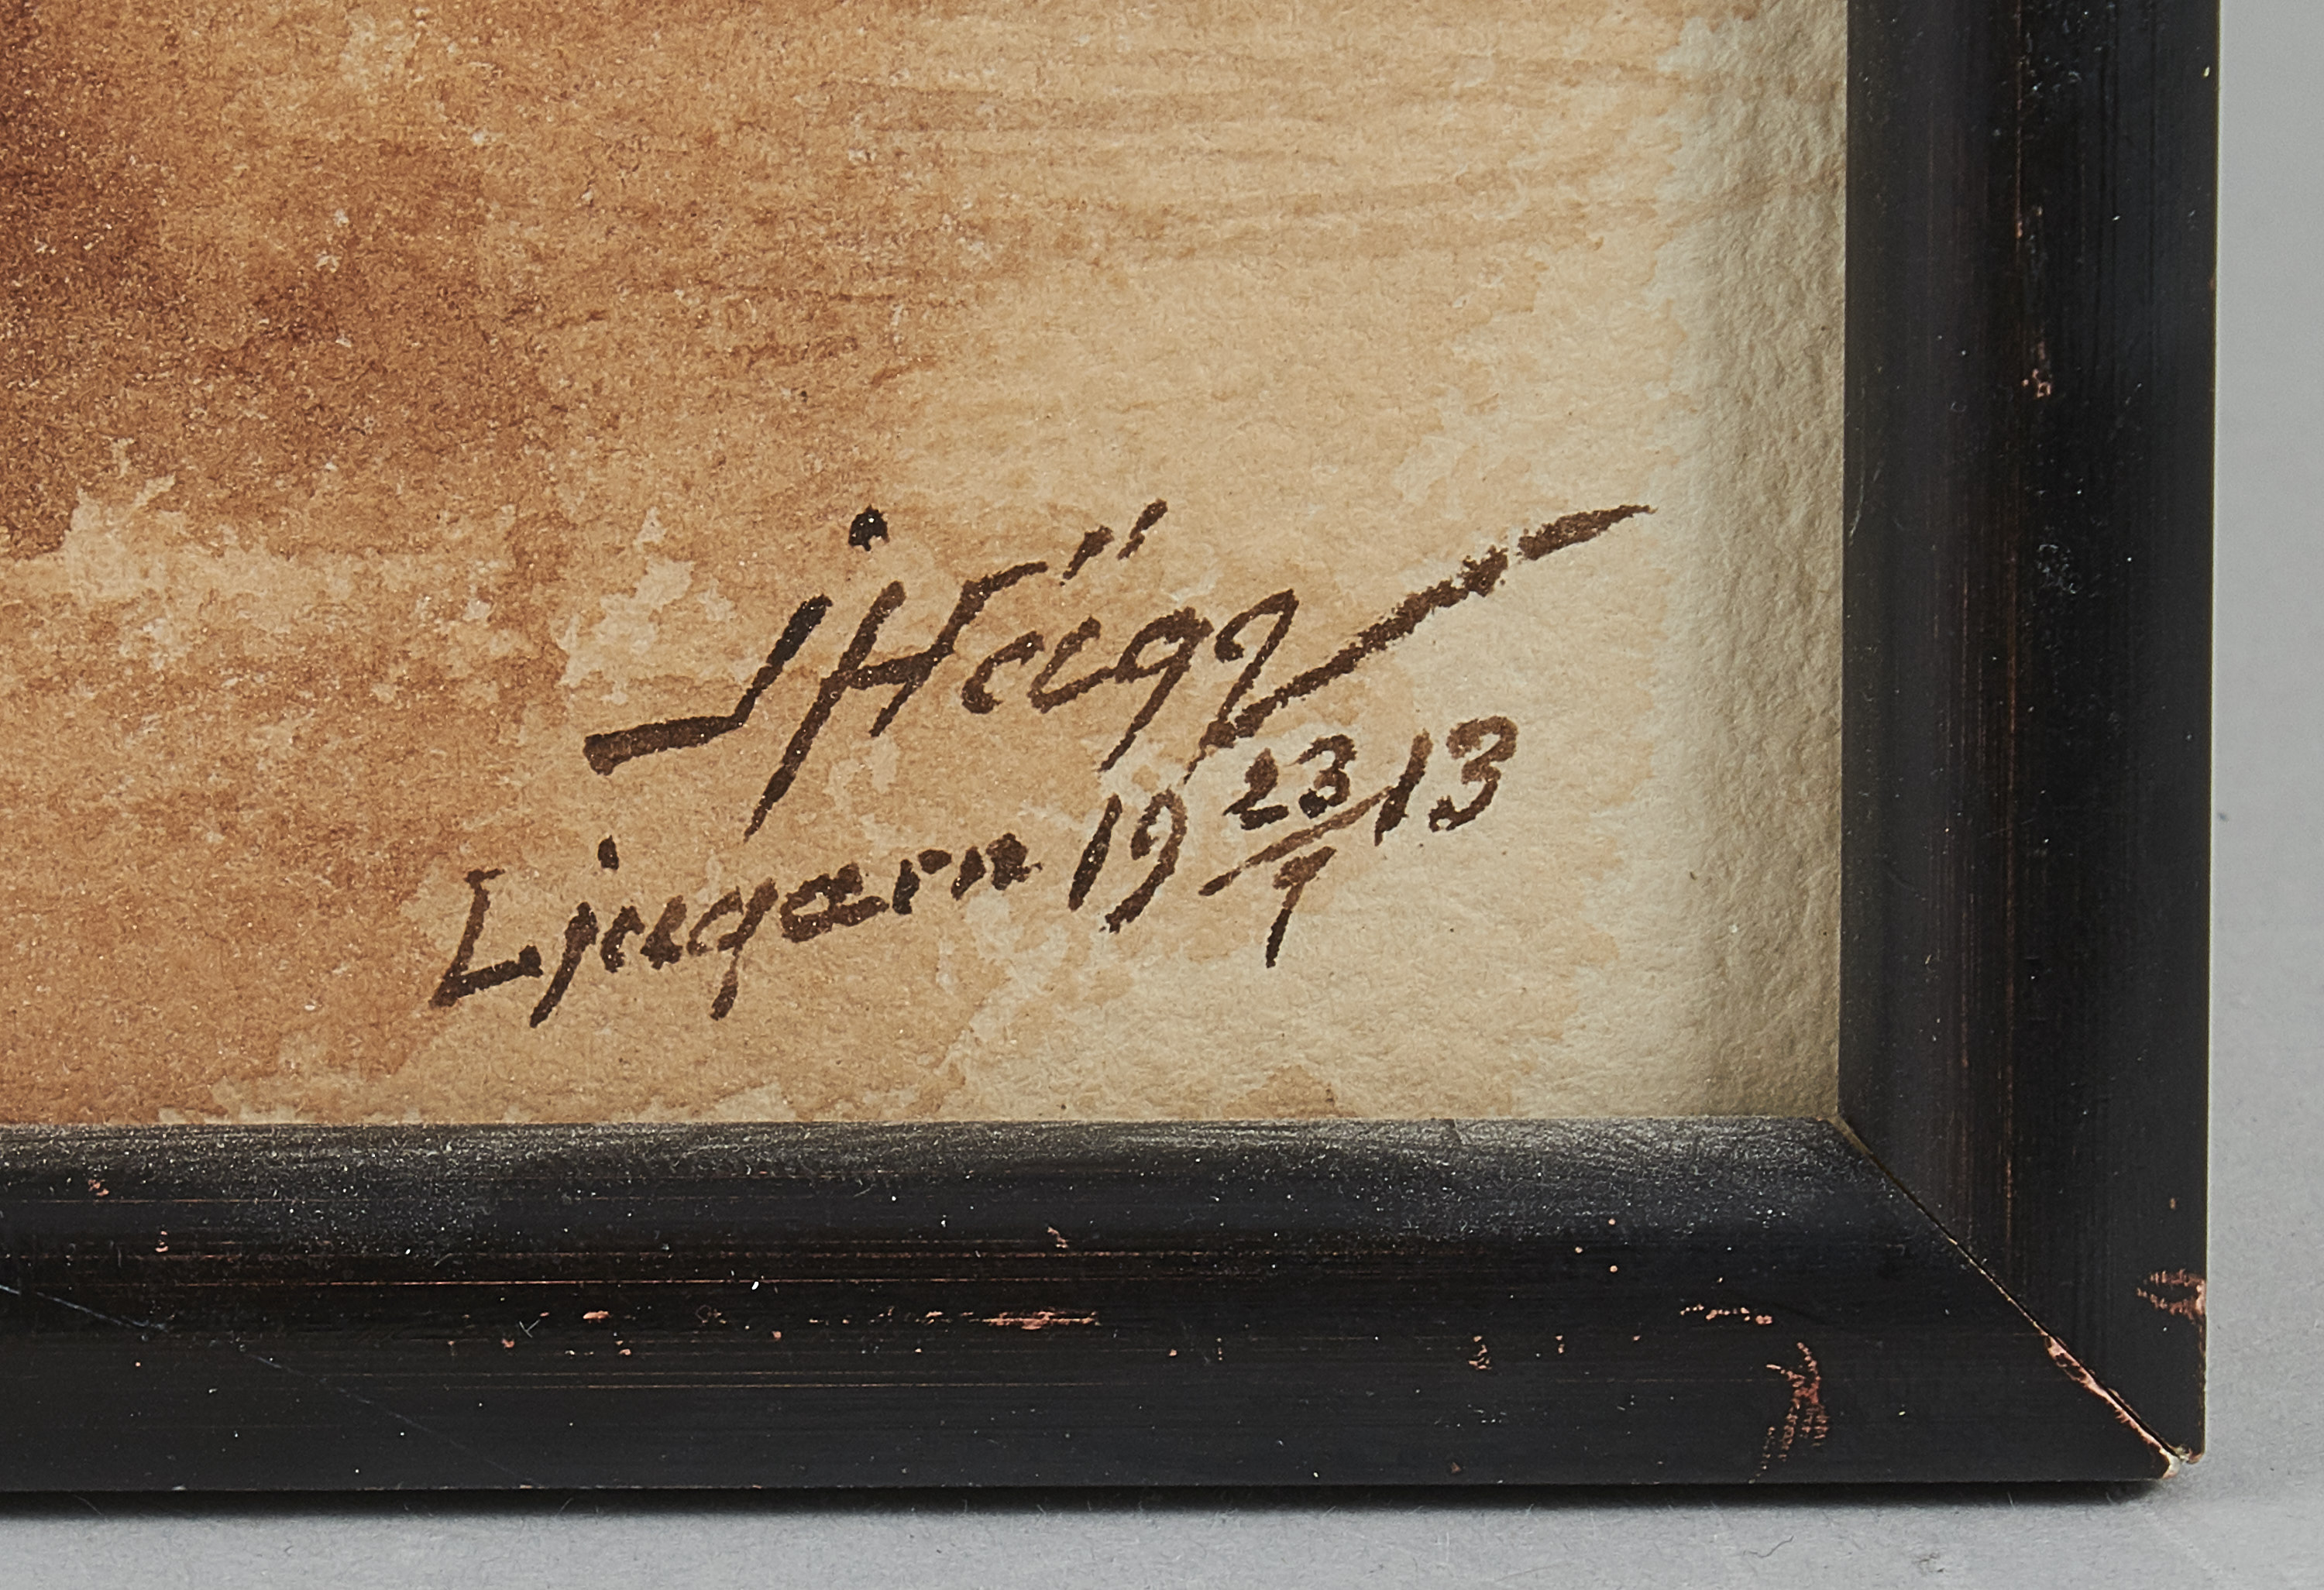 J Hägg
Ljugarn 19 23/7 13